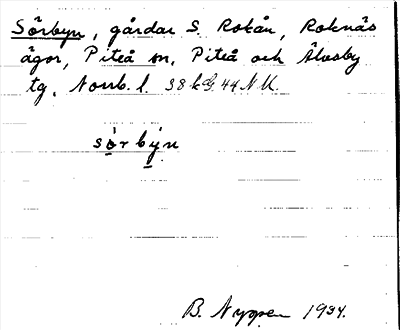 Sörbyn, gårdar S. Rokån, Roknäs
ägor, Piteå sn, Piteå och Älvsby
tg. Norrb. l. 38 k G. 44 N U.
sörbýn
B. Nygren 1934.